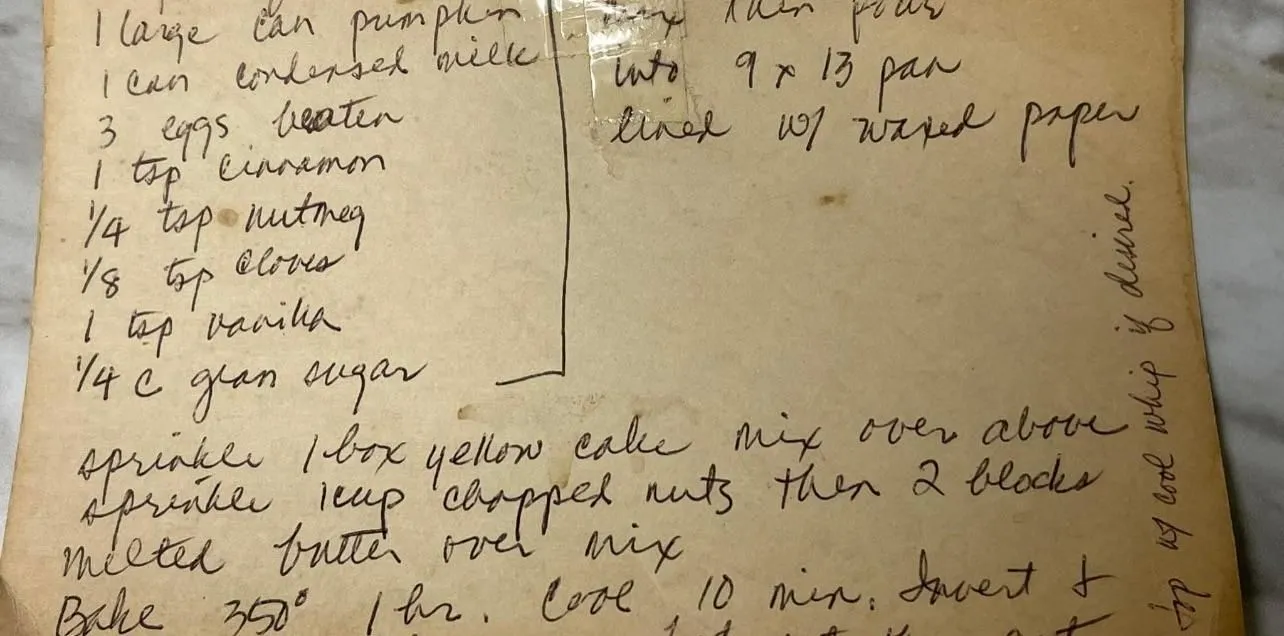 1 large can pumpkin
1 can condensed milk
3 eggs beaten
1 tsp cinnamon
1/4 tsp nutmeg
1/8 tsp cloves
1 tsp vanilla
1/4 c gran sugar
mix then pour
into 9 x 13 pan
lined w/ waxed paper
sprinkle 1 box yellow cake mix over above
sprinkle 1 cup chopped nuts then 2 blocks
melted butter over mix
Bake 350° 1 hr. Cool 10 min. Invert &
top w/ cool whip if desired.